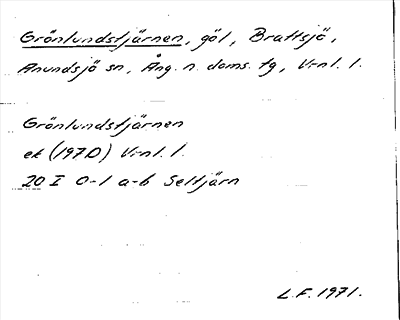 Grönlundstjärnen, göl, Brattsjö,
Anundsjö sn, Ång. n. doms. tg, V:nl. l.
Grönlundstjärnen
ek (1970) V:nl. l.
20 I 0-1 a-b Seltjärn
L.F. 1971.